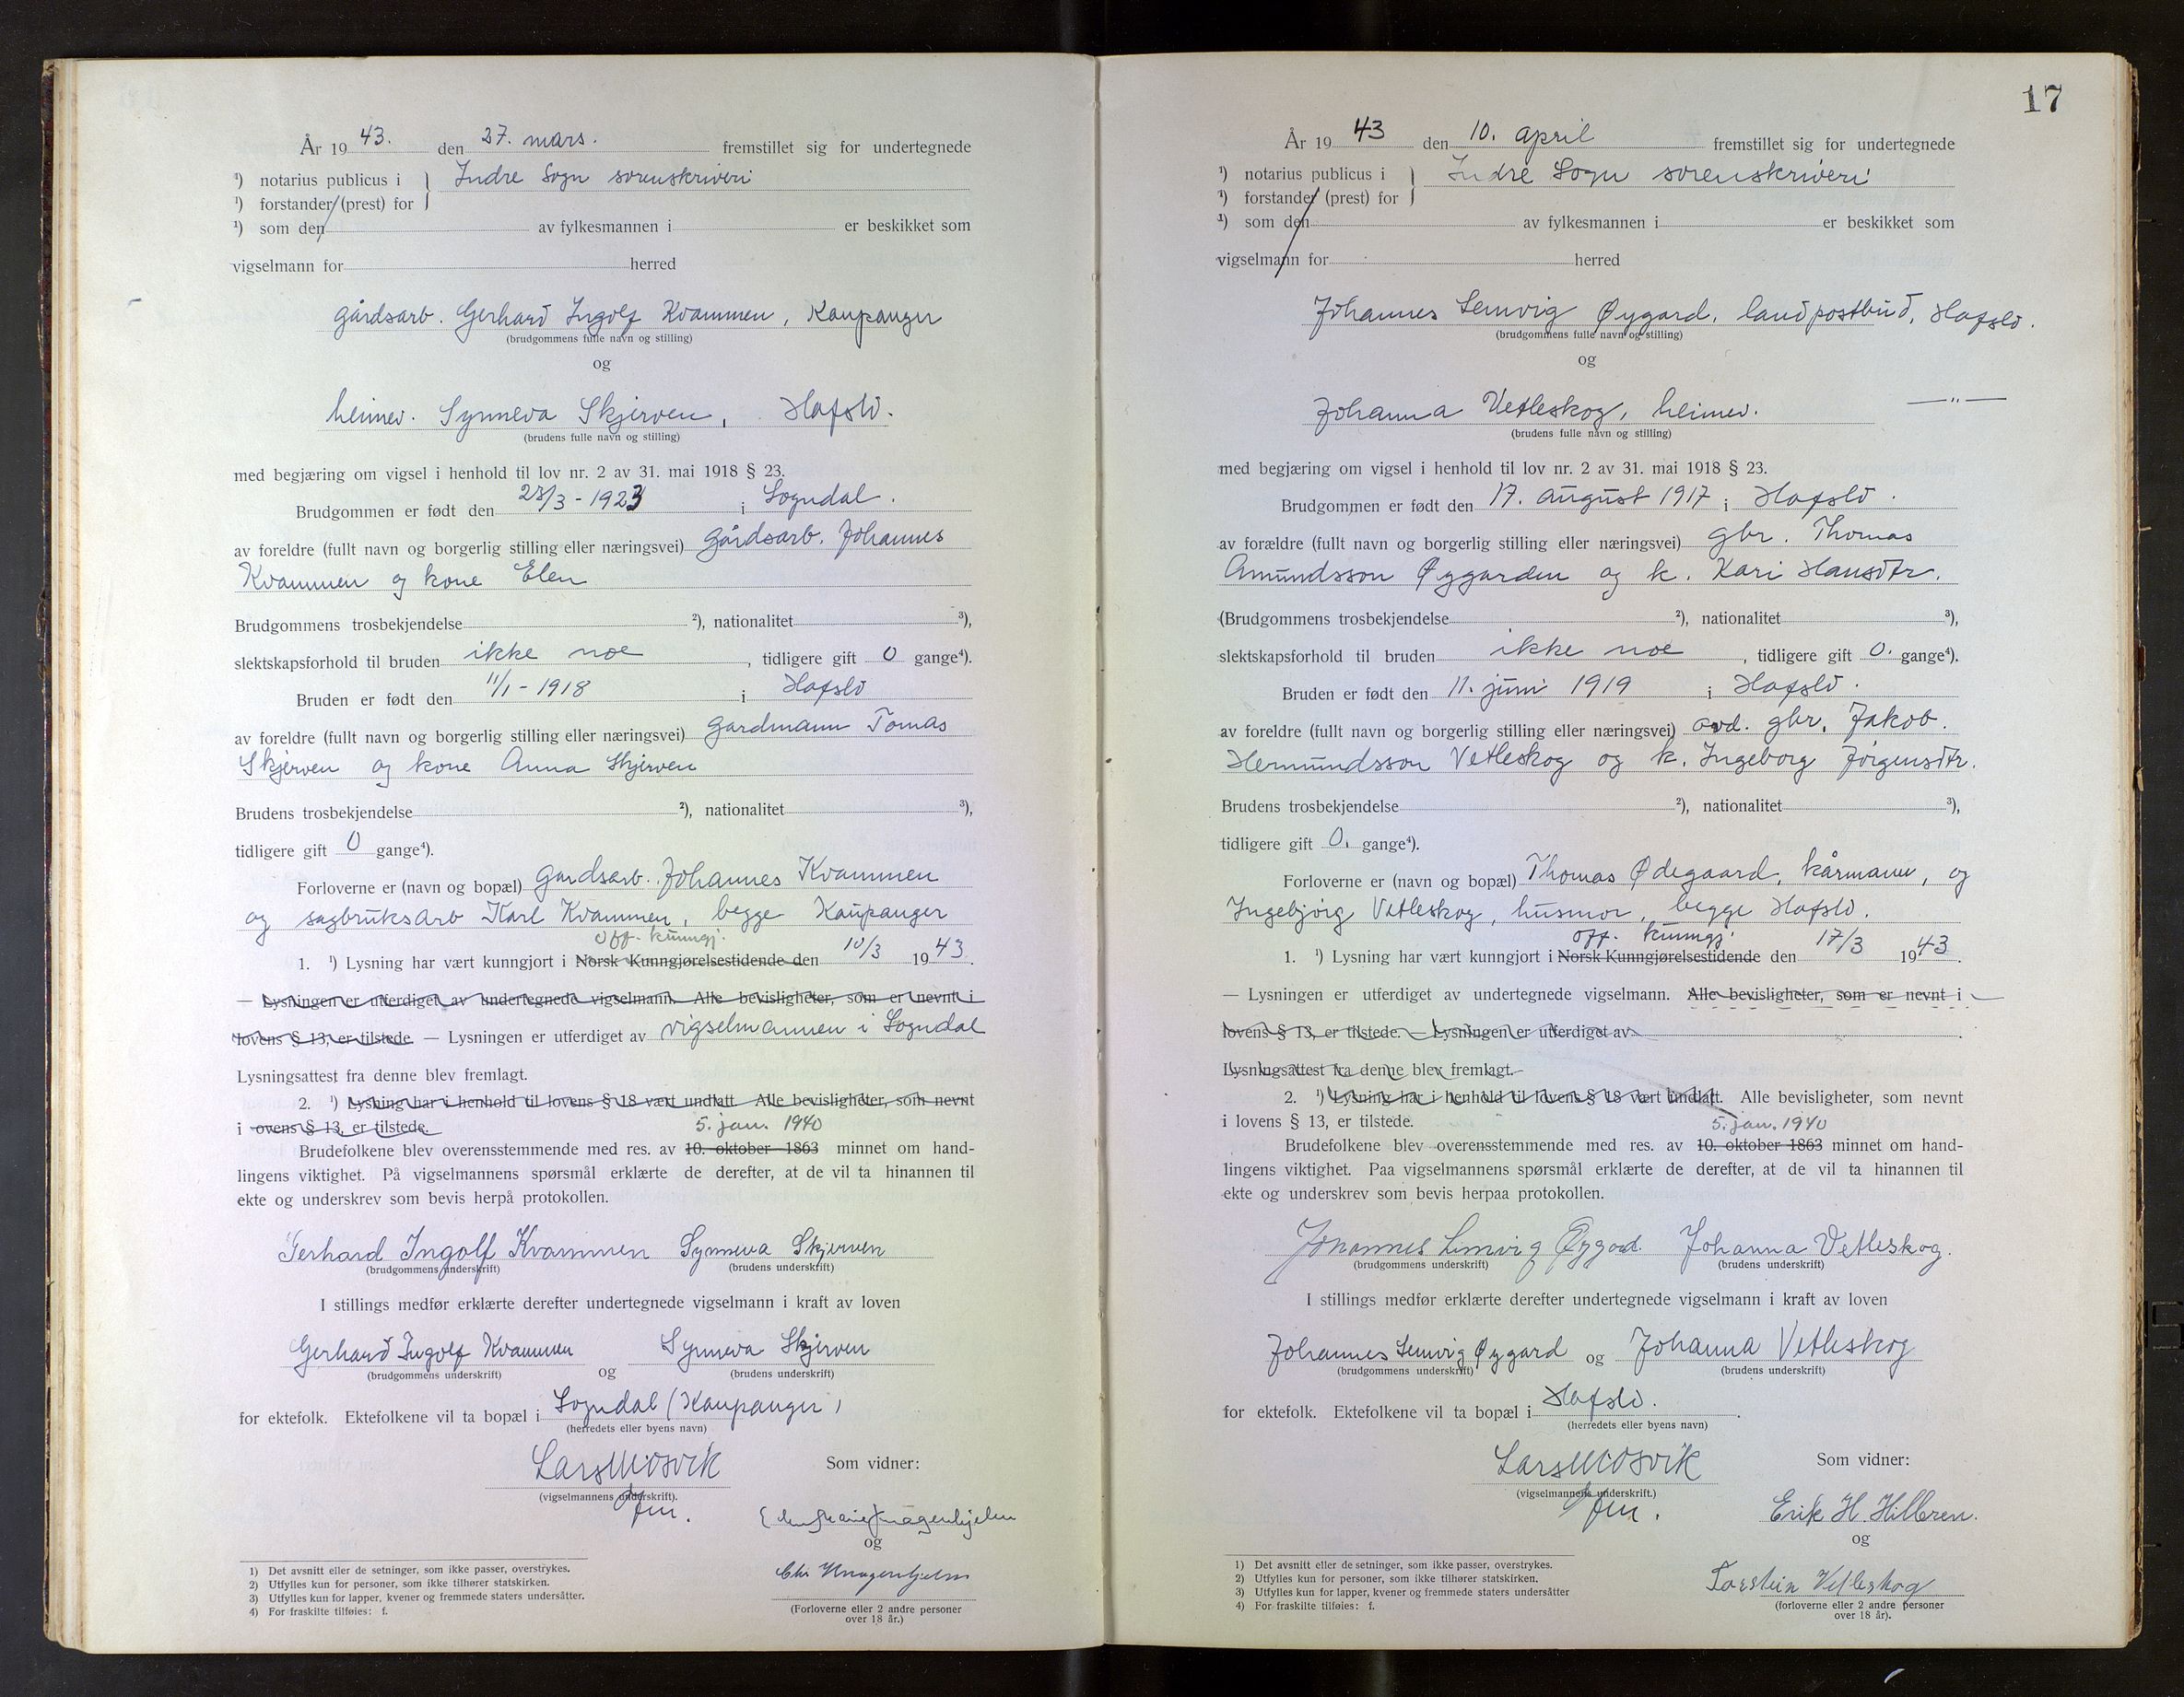 År 1943. den 27. mars. fremstillet sig for undertegnede
¹) notarius publicus i } Indre Sogn sorenskriveri
¹) forstander (prest) for
¹) som den av fylkesmannen i er beskikket som
vigselmann for herred
gårdsarb. Gerhard Ingolf Kvammen, Kaupanger
(brudgommens fulle navn og stilling)
og
heimev. Synneva Skjerven, Hafslo.
(brudens fulle navn og stilling)
med begjæring om vigsel i henhold til lov nr. 2 av 31. mai 1918 § 23.
Brudgommen er født den 28/3-1923 i Sogndal.
av foreldre (fullt navn og borgerlig stilling eller næringsvei) gårdsarb. Johannes
Kvammen og kone Elen
Brudgommens trosbekjendelse ²), nationalitet ³),
slektskapsforhold til bruden ikke noe, tidligere gift 0 gange⁴).
Bruden er født den 11/1-1918 i Hafslo
av foreldre (fullt navn og borgerlig stilling eller næringsvei) gardmann Tomas
Skjerven og kone Anna Skjerven
Brudens trosbekjendelse ²), nationalitet ³),
tidligere gift 0 gange⁴).
Forloverne er (navn og bopæl) gardsarb. Johannes Kvammen
og sagbruksarb Karl Kvammen, begge Kaupanger
off. kunngj.
1. ¹) Lysning har vært kunngjort i Norsk Kunngjørelsestidende den 10/3 1943.
— Lysningen er utferdiget av undertegnede vigselmann. Alle bevisligheter, som er nevnt i
lovens § 13, er tilstede. — Lysningen er utferdiget av vigselmannen i Sogndal
Lysningsattest fra denne blev fremlagt.
2. ¹) Lysning har i henhold til lovens § 18 vært undlatt Alle bevisligheter, som nevnt
i ovens § 13, er tilstede.
5. jan. 1940
Brudefolkene blev overensstemmende med res. av 10. oktober 1863 minnet om hand-
lingens viktighet. På vigselmannens spørsmål erklærte de derefter, at de vil ta hinannen til
ekte og underskrev som bevis herpå protokollen.
Gerhard Ingolf Kvammen Synneva Skjerven
(brudgommens underskrift) (brudens underskrift)
I stillings medfør erklærte derefter undertegnede vigselmann i kraft av loven
Gerhard Ingolf Kvammen og Synneva Skjerven
(brudgommens underskrift) (brudens underskrift)
for ektefolk. Ektefolkene vil ta bopæl i Sogndal (Kaupanger)
(herredets eller byens navn)
Lars M Osvik
(vigselmannens underskrift).
Som vidner:
og
Chr Knagenhjelm
(Forloverne eller 2 andre personer
over 18 år.)
1) Det avsnitt eller de setninger, som ikke passer, overstrykes.
2) Utfylles kun for personer, som ikke tilhører statskirken.
3) Utfylles kun for lapper, kvener og fremmede staters undersåtter.
4) For fraskilte tilføies: f.
17
År 1943 den 10. april fremstillet sig for undertegnede
¹) notarius publicus i } Indre Sogn sorenskriveri
¹) forstander (prest) for
¹) som den av fylkesmannen i er beskikket som
vigselmann for herred
Johannes Lemvig Øygard, landpostbud, Hafslo.
(brudgommens fulle navn og stilling)
og
Johanna Vetleskog, heimev. —„—
(brudens fulle navn og stilling)
med begjæring om vigsel i henhold til lov nr. 2 av 31. mai 1918 § 23.
Brudgommen er født den 17. august 1917 i Hafslo.
av forældre (fullt navn og borgerlig stilling eller næringsvei) gbr. Thomas
Amundsson Øygarden og k. Kari Hansdtr.
(Brudgommens trosbekjendelse ²), nationalitet ³),
slektskapsforhold til bruden ikke noe, tidligere gift 0. gange⁴).
Bruden er født den 11. juni 1919 i Hafslo.
av foreldre (fullt navn og borgerlig stilling eller næringsvei) avd. gbr. Jakob
Hermundsson Vetleskog og k. Ingeborg Jørgensdtr.
Brudens trosbekjendelse ²), nationalitet ³),
tidligere gift 0. gange⁴).
Forloverne er (navn og bopæl) Thomas Ødegaard, kårmann, og
Ingebjørg Vetleskog, husmor, begge Hafslo.
off. kunngj.
1. ¹) Lysning har vært kunngjort i Norsk Kunngjørelsestidende den 17/3 1943.
— Lysningen er utferdiget av undertegnede vigselmann. Alle bevisligheter, som er nevnt i
lovens § 13, er tilstede. — Lysningen er utferdiget av
Lysningsattest fra denne blev fremlagt.
2. ¹) Lysning har i henhold til lovens § 18 vært undlatt. Alle bevisligheter, som nevnt
i lovens § 13, er tilstede.
5. jan. 1940
Brudefolkene blev overensstemmende med res. av 10. oktober 1863 minnet om hand-
lingens viktighet. Paa vigselmannens spørsmål erklærte de derefter, at de vil ta hinannen til
ekte og underskrev som bevis herpaa protokollen.
Johannes Lemvig Øygard Johanna Vetleskog.
(brudgommens underskrift) (brudens underskrift)
I stillings medfør erklærte derefter undertegnede vigselmann i kraft av loven
Johannes Lemvig Øygard og Johanna Vetleskog
(brudgommens underskrift) (brudens underskrift)
for ektefolk. Ektefolkene vil ta bopæl i Hafslo.
(herredets eller byens navn)
Lars M Osvik
(vigselmannens underskrift.)
Som vidner:
Erik H. Hilleren.
og
Torstein Vetleskog
(forloverne eller 2 andre personer
over 18 år).
1) Det avsnitt eller de setninger, som ikke passer, overstrykes.
2) Utfylles kun for personer, som ikke tilhører statskirken.
3) Utfylles kun for lapper, kvener og fremmede staters undersåtter
4) For fraskilte tilføies: f.